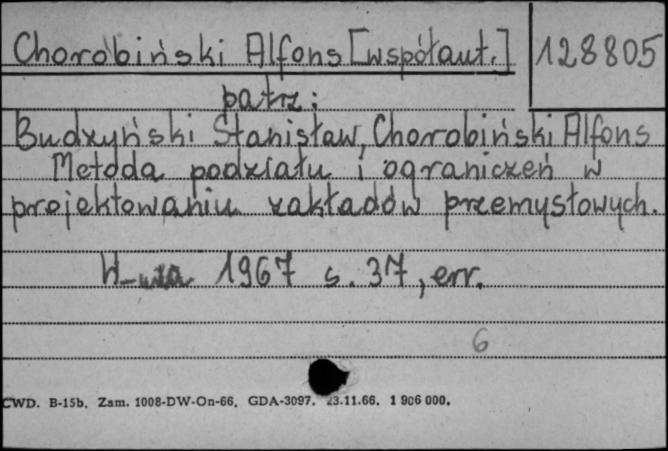 Chorobiński Alfons [współaut.] 128805
patrz:
Budzyński Stanisław, Chorobiński Alfons
Metoda podziału i ograniczeń w
projektowaniu zakładów przemysłowych.
W-wa 1967 s. 37, err.
6
CWD. B-15b. Zam. 1008-DW-On-66. GDA-3097. 23.11.66. 1 906 000.